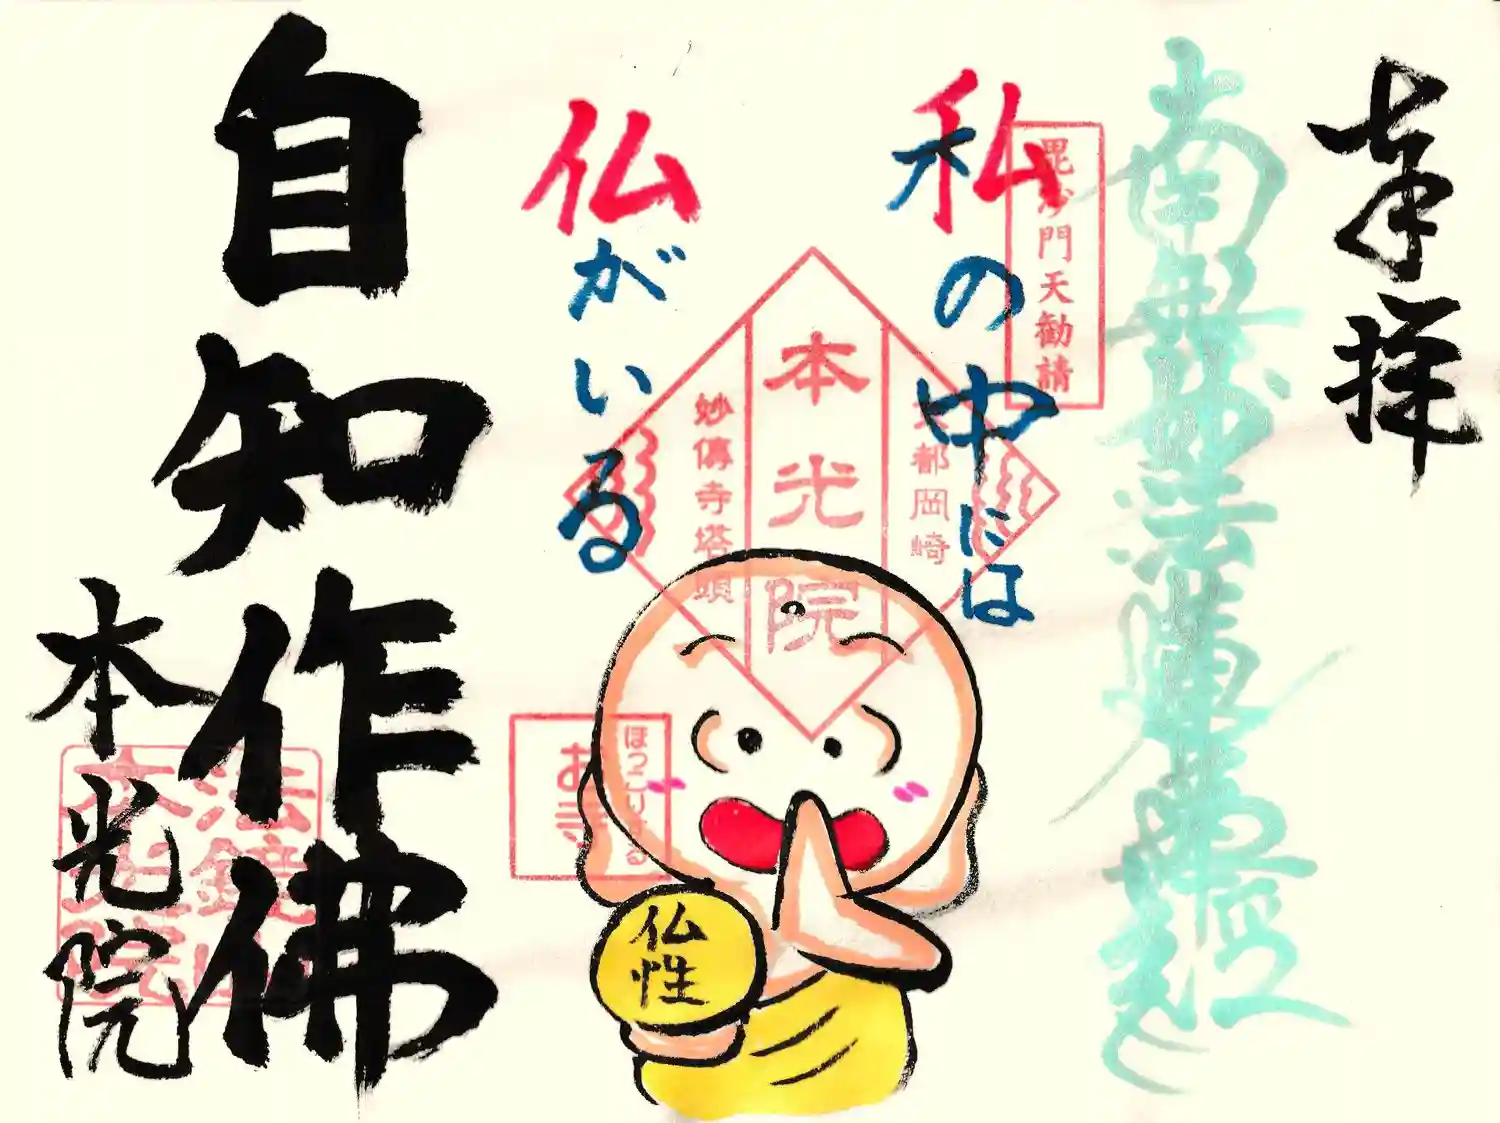 奉拝
南無妙法蓮華経
毘沙門天勧請
私の中には
仏がいる
京都岡崎
本光院
妙傳寺塔頭
ほっこりする
お寺
仏性
自知作佛
本光院
法鏡山
本光院